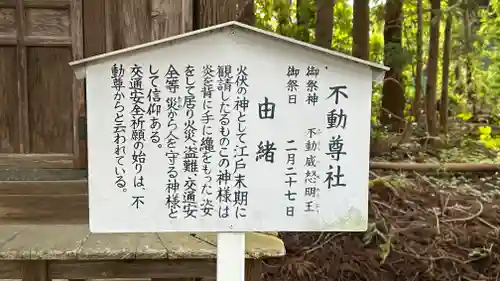 不動尊社
御祭神 不動威怒明王
御祭日 二月二十七日
由緒
火伏の神として江戸末期に
観請したるものこの神様は
炎を背に手に縄をもった姿
をして居り火災、盗難、交通安
全等、災から人を守る神様と
して信仰ある。
交通安全祈願の始りは、不
動尊からと云われている。